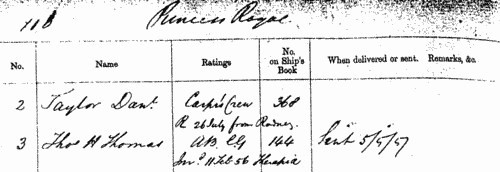 118 Princess Royal
No. Name Ratings No. on Ship's Book When delivered or sent. Remarks, &c.
2 Taylor Danl Carp's Crew 368
R 26 July from Rodney.
3 Thos H Thomas A.B. CG 144 Sent 5/5/57
Invd 11 Feb 56 Therapia